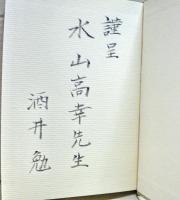 謹呈
水山高幸先生
酒井勉